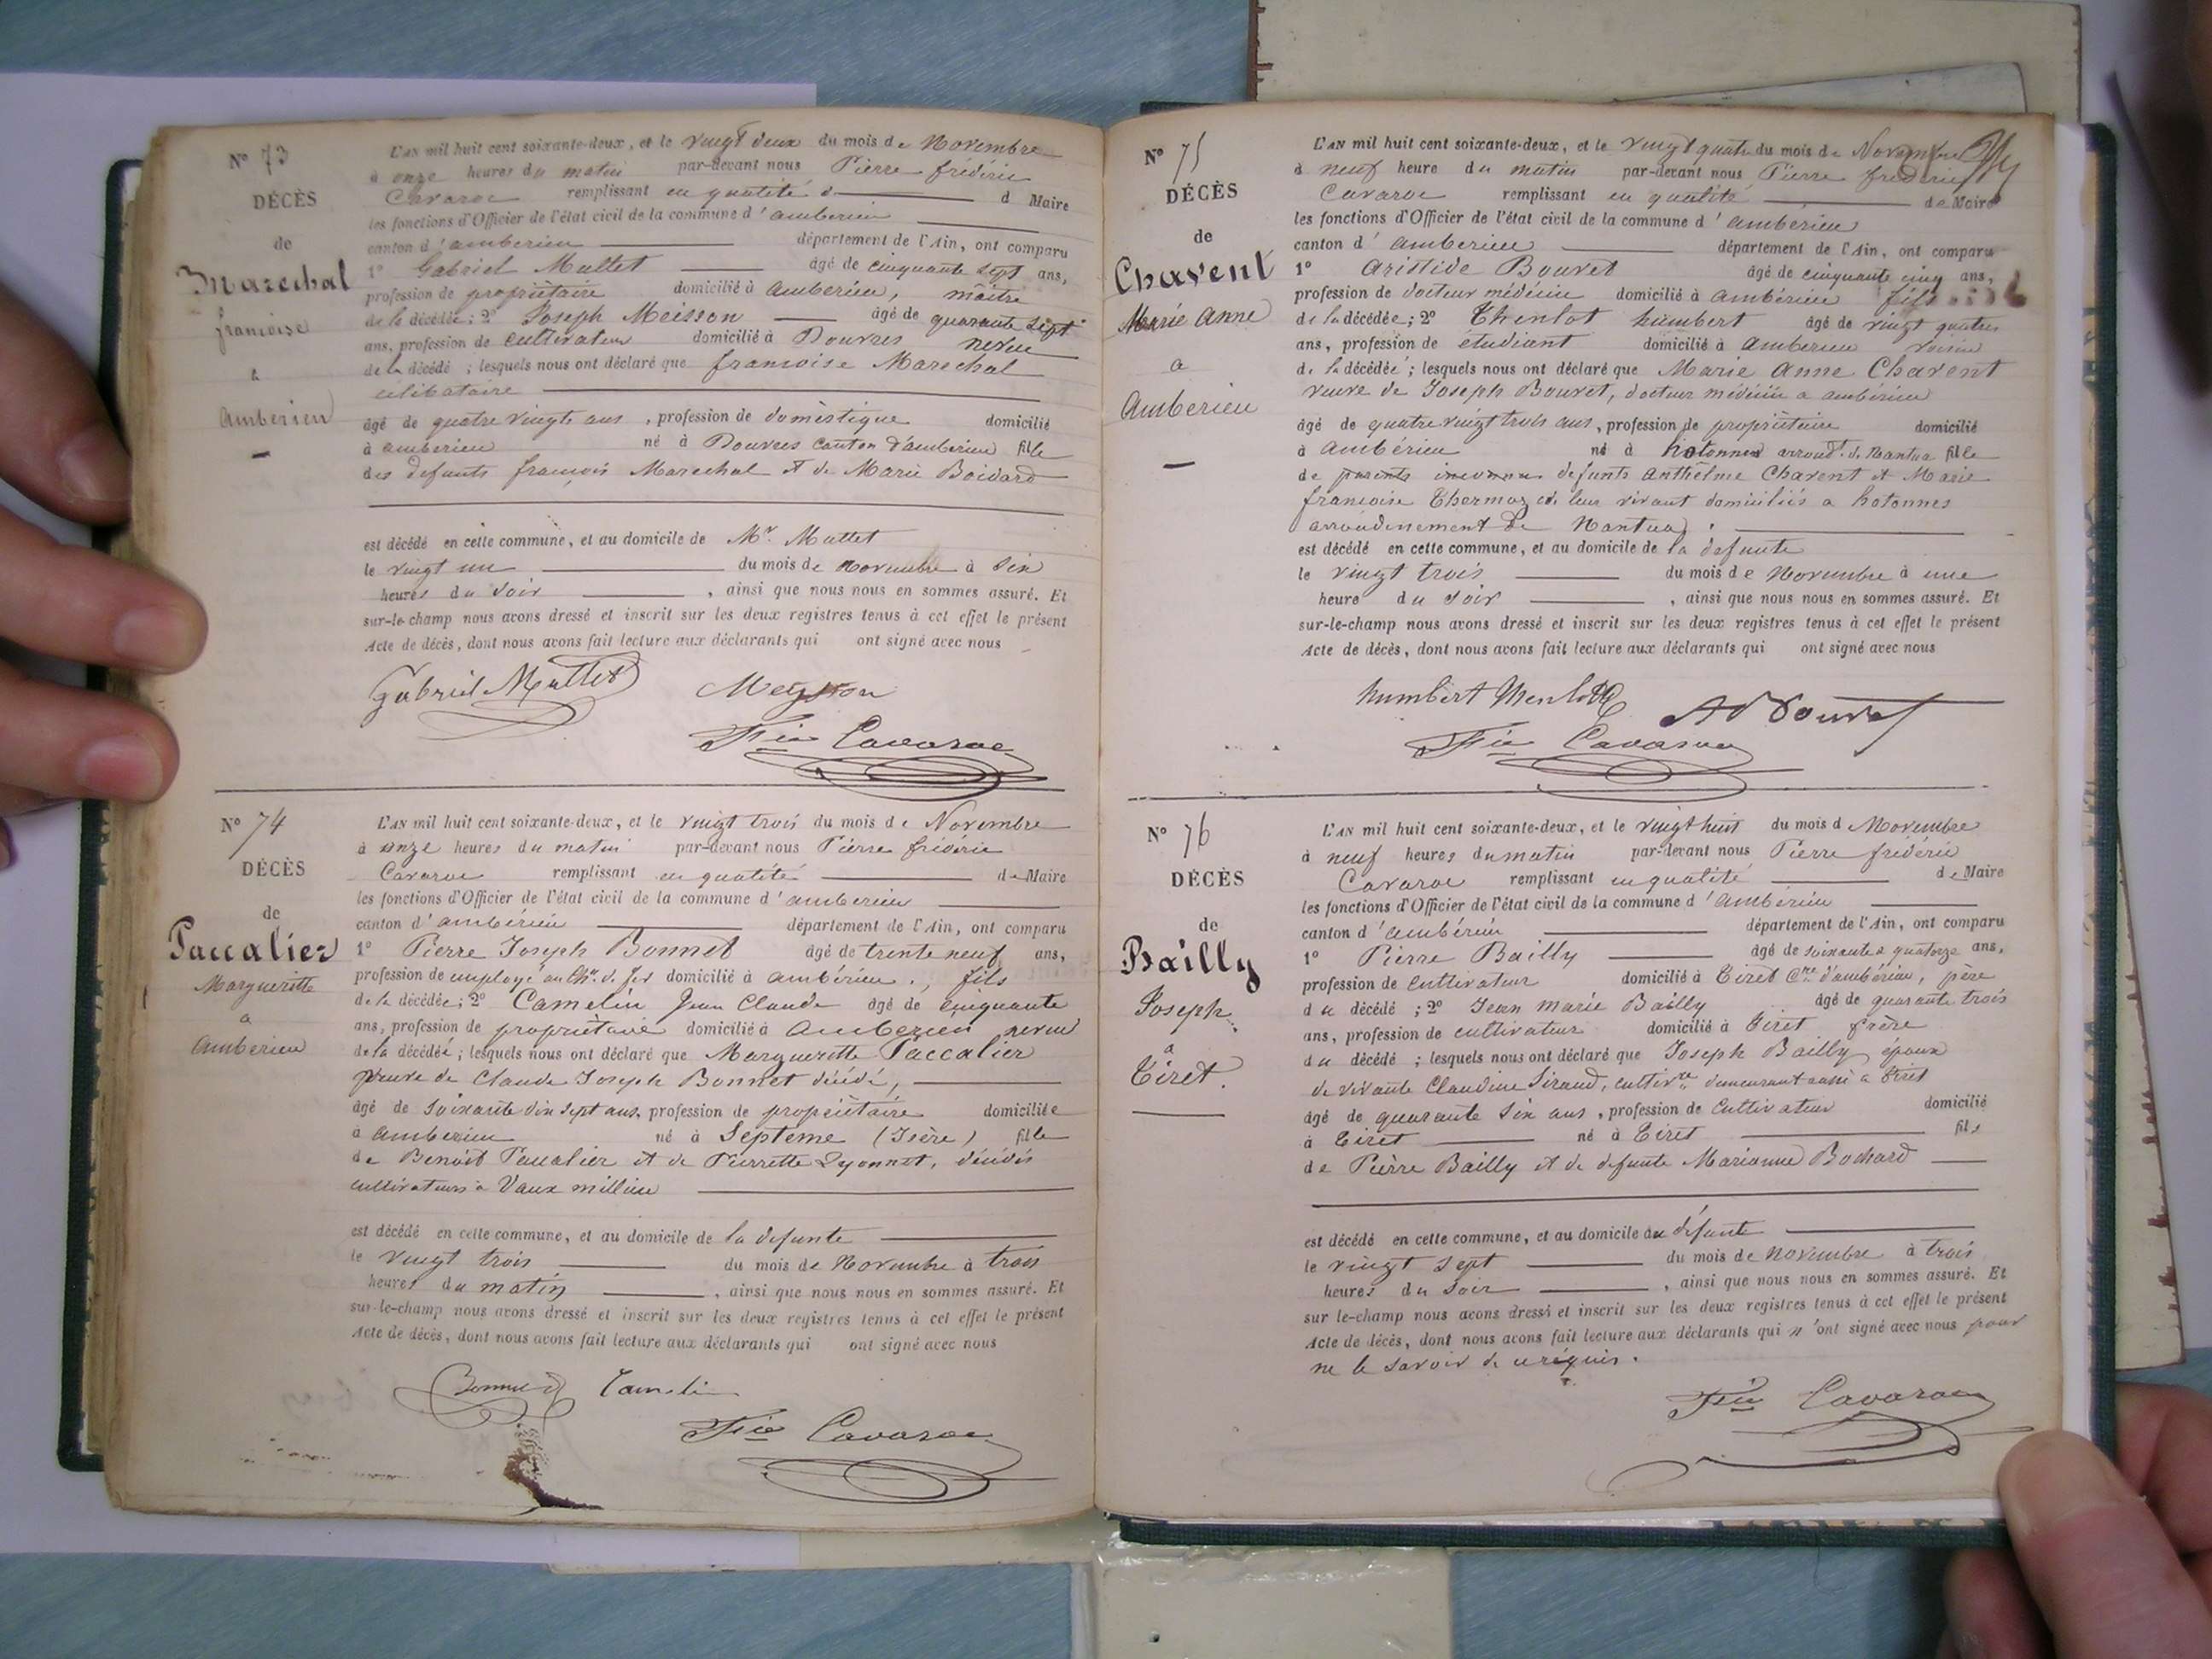 N° 73
DÉCÈS
de
Marechal
francoise
a
Amberieu
L'AN mil huit cent soixante-deux, et le vingt deux du mois de Novembre
à onze heures du matin par-devant nous Pierre fréderic
Cavaroc remplissant en qualité d d Maire
les fonctions d'Officier de l'état civil de la commune d'amberieu
canton d'amberieu département de l'Ain, ont comparu
1° Gabriel Muttet âgé de cinquante sept ans,
profession de propriétaire domicilié à amberieu, maitre
de la décédée; 2° Joseph Meisson âgé de quarante sept
ans, profession de cultivateur domicilié à Douvres neveu
de la décédé ; lesquels nous ont déclaré que francoise Marechal
célibataire
âgé de quatre vingts ans , profession de domèstique domicilié
à amberieu né à Douvres canton d'amberieu fille
des defunts françois Marechal et de Marie Boidard
est décédé en cette commune, et au domicile de Mr. Muttet
le vingt un du mois de novembre à six
heures du soir , ainsi que nous nous en sommes assuré. Et
sur-le-champ nous avons dressé et inscrit sur les deux registres tenus à cet effet le présent
Acte de décès, dont nous avons fait lecture aux déclarants qui ont signé avec nous
Gabriel Muttet Meysson
Fric Cavaroc
N° 74
DÉCÈS
de
Paccalier
Margueritte
a
Amberieu
L'AN mil huit cent soixante-deux, et le vingt trois du mois de Novembre
à onze heures du matin par-devant nous Pierre fréderic
Cavaroc remplissant en qualité de Maire
les fonctions d'Officier de l'état civil de la commune d'amberieu
canton d'ambérieu département de l'Ain, ont comparu
1° Pierre Joseph Bonnet âgé de trente neuf ans,
profession de employé au Ch. d. fer domicilié à ambérieu, fils
de la décédée; 2° Camelin Jean Claude âgé de cinquante
ans, profession de propriétaire domicilié à Amberieu neveu
de la décédéé ; lesquels nous ont déclaré que Margueritte Paccalier
veuve de Claude Joseph Bonnet décédé,
âgé de soixante dix sept ans, profession de propriétaire domiciliée
à amberieu né à Septeme (Isère) fille
de Benoit Paccalier et de Pierrette Lyonnet, décédés
cultivateurs à Vaux millieu
est décédé en cette commune, et au domicile de la defunte
le vingt trois du mois de Novembre à trois
heures du matin , ainsi que nous nous en sommes assuré. Et
sur-le-champ nous avons dressé et inscrit sur les deux registres tenus à cet effet le présent
Acte de décès, dont nous avons fait lecture aux déclarants qui ont signé avec nous
Bonnet Camelin
Fric Cavaroc
N° 75
DÉCÈS
de
Chavent
Marie Anne
a
Amberieu
L'AN mil huit cent soixante-deux, et le vingt quatre du mois de Novembre
à neuf heure du matin par-devant nous Pierre frederic
Cavaroc remplissant en qualité de Maire
les fonctions d'Officier de l'état civil de la commune d'ambérieu
canton d'amberieu département de l'Ain, ont comparu
1° Aristide Bouvet âgé de cinquante cinq ans,
profession de docteur médécin domicilié à ambérieu fils
de la décédée; 2° Thenlot humbert âgé de vingt quatre
ans, profession de étudiant domicilié à amberieu voisin
de la décédéé ; lesquels nous ont déclaré que Marie Anne Chavent
veuve de Joseph Bouvet, docteur médécin a ambérieu
âgé de quatre vingt trois ans, profession de propriétaire domicilié
à Ambérieu né à hotonnes arroud.t de Nantua fille
de parents inconnus defunts anthelme Chavent et Marie
francoise Thermoz de leur vivant domiciliés a hotonnes
arroudinement de Nantua.
est décédé en cette commune, et au domicile de la defunte
le vingt trois du mois de Novembre à une
heure du soir , ainsi que nous nous en sommes assuré. Et
sur-le-champ nous avons dressé et inscrit sur les deux registres tenus à cet effet le présent
Acte de décès, dont nous avons fait lecture aux déclarants qui ont signé avec nous
humbert Thenlot Ad Bouvet
Fric Cavaroc
N° 76
DÉCÈS
de
Bailly
Joseph
a
Tiret.
L'AN mil huit cent soixante-deux, et le vingt huit du mois d Novembre
à neuf heures du matin par-devant nous Pierre fréderic
Cavaroc remplissant en qualité de Maire
les fonctions d'Officier de l'état civil de la commune d'ambérieu
canton d'ambérieu département de l'Ain, ont comparu
1° Pierre Bailly âgé de soixante quatorze ans,
profession de cultivateur domicilié à Tiret Cne d'ambérieu, père
du décédé ; 2° Jean marie Bailly âgé de quarante trois
ans, profession de cultivateur domicilié à Tiret frère
du décédé ; lesquels nous ont déclaré que Joseph Bailly époux
de vivante Claudine Siraud, cultivce demeurant aussi a Tiret
âgé de quarante six ans, profession de cultivateur domicilié
à Tiret né à Tiret fils
de Pierre Bailly et de defunte Marianne Bochard
est décédé en cette commune, et au domicile du défunte
le vingt sept du mois de Novembre à trois
heures du soir , ainsi que nous nous en sommes assuré. Et
sur le-champ nous avons dressé et inscrit sur les deux registres tenus à cet effet le présent
Acte de décès, dont nous avons fait lecture aux déclarants qui n'ont signé avec nous pour
ne le savoir de ce requis.
Fric Cavaroc